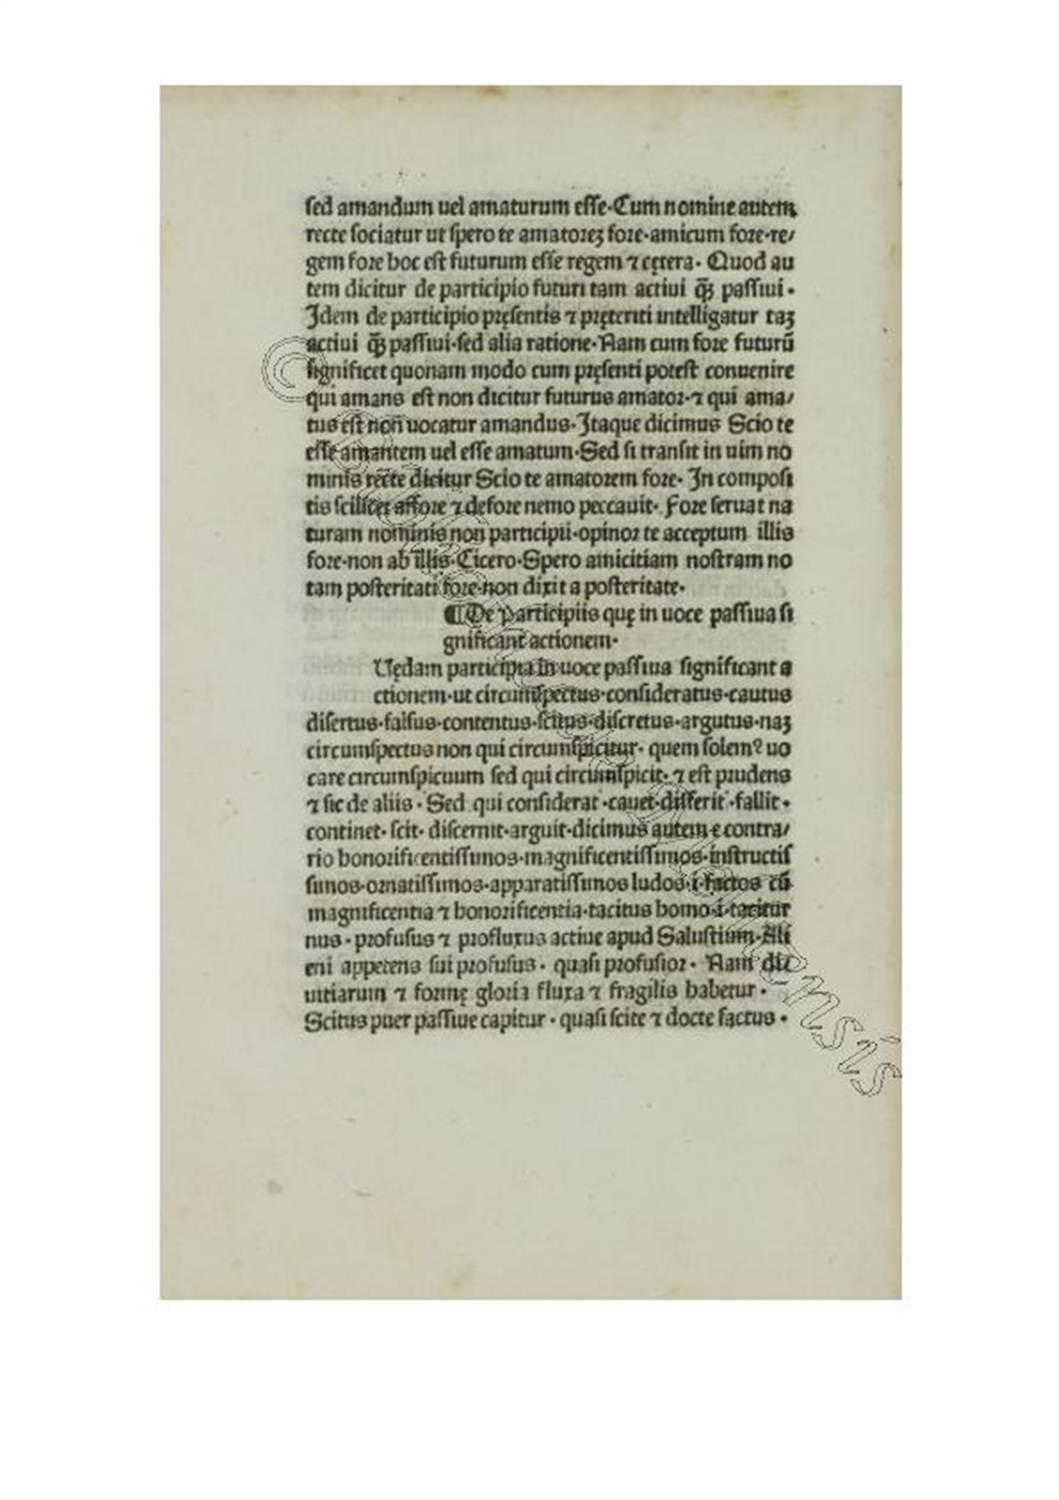 sed amandum uel amaturum esse·Cum nomine autem
recte sociatur ut spero te amatoreꝫ fore·amicum fore·re/
gem fore hoc est futurum esse regem ⁊ cętera· Quod au
tem dicitur de participio futuri tam actiui q̃ꝫ passiui·
Idem de participio pręsentis ⁊ pręteriti intelligatur taꝫ
actiui q̃ꝫ passiui·sed alia ratione·Nam cum fore futurũ
significet quonam modo cum pręsenti potest conuenire
qui amans est non dicitur futurus amator·⁊ qui ama/
tus est non uocatur amandus·Itaque dicimus Scio te
esse amantem uel esse amatum·Sed si transit in uim no
minis recte dicitur Scio te amatorem fore· In composi
tis scilicet affore ⁊ defore nemo peccauit· Fore seruat na
turam nominis non participii·opinor te acceptum illis
fore·non ab illis·Cicero·Spero amicitiam nostram no
tam posteritati fore·non dixit a posteritate·
¶De participiis quę in uoce passiua si
gnificant actionem·
Uędam participia in uoce passiua significant a
ctionem·ut circumspectus·consideratus·cautus
disertus·falsus·contentus·scitus·discretus·argutus·naꝫ
circumspectus non qui circumspicitur· quem solem⁹ uo
care circumspicuum sed qui circumspicit· ⁊ est prudens
⁊ sic de aliis· Sed qui considerat·cauet·differit·fallit·
continet·scit· discernit·arguit·dicimus autem e contra/
rio honorificentissimos·magnificentissimos·instructis
simos·ornatissimos·apparatissimos ludos·i·factos cũ
magnificentia ⁊ honorificentia·tacitus homo·i·tacitur
nus·profusus ⁊ profluxus actiue apud Salustium·Ali
eni appetens sui profusus· quasi profusior· Nam diu
uitiarum ⁊ formę gloria fluxa ⁊ fragilis habetur·
Scitus puer passiue capitur·quasi scite ⁊ docte factus·